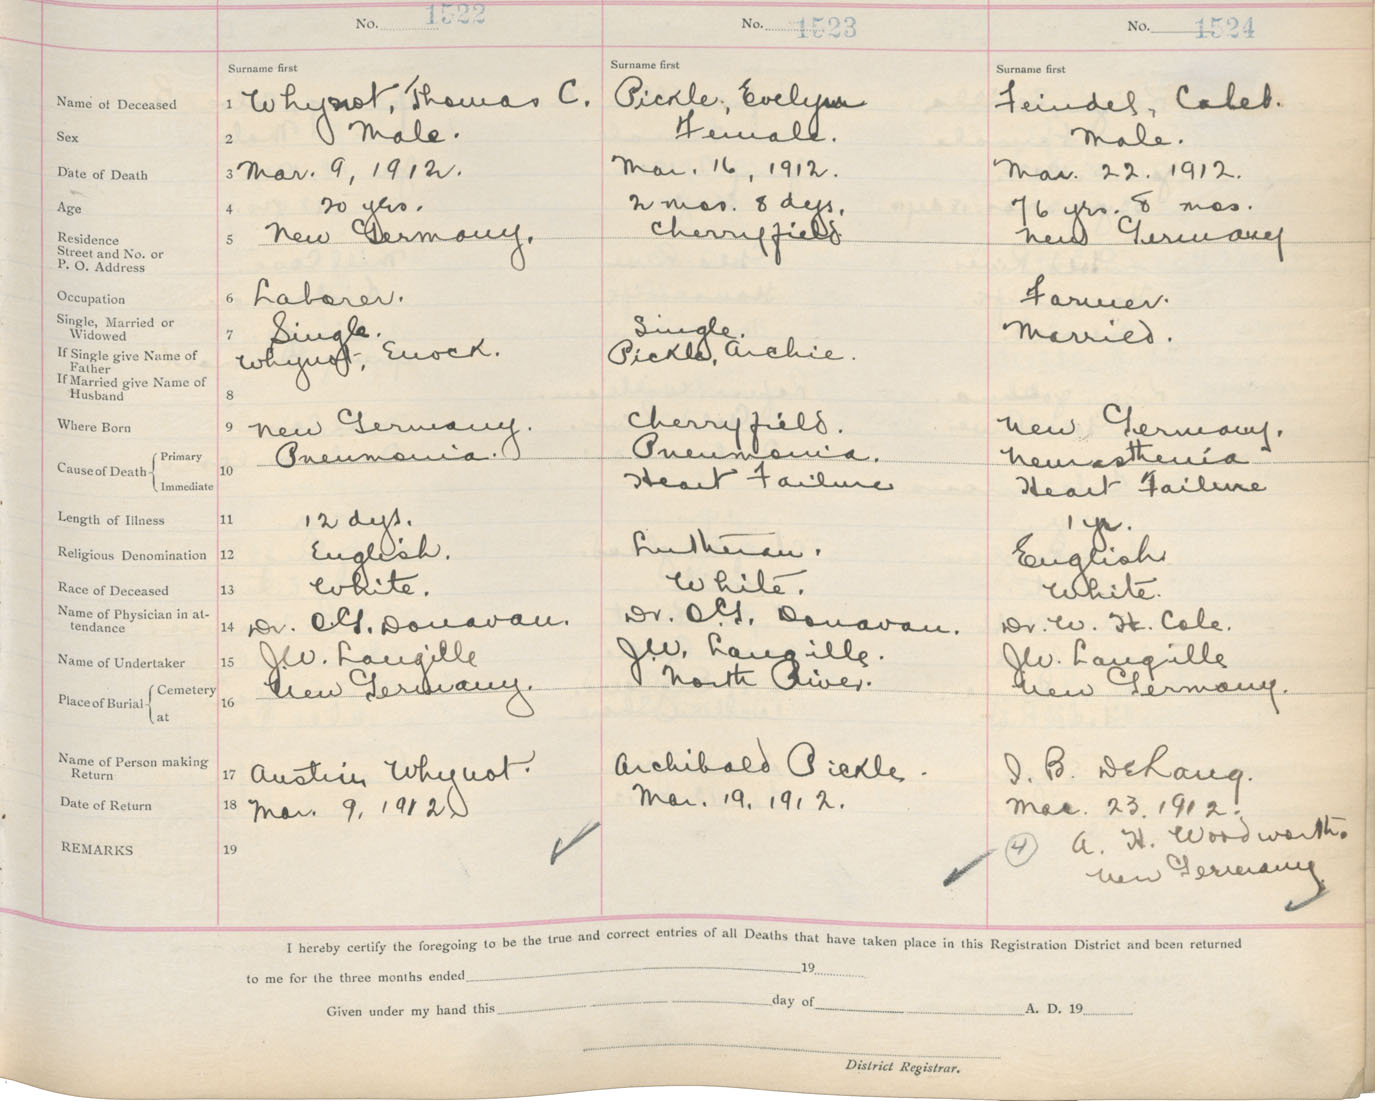 No. 1522 No. 1523 No. 1524
Surname first Surname first Surname first
Name of Deceased 1 Whynot, Thomas C. Pickle, Evelyn Feindel, Caleb.
Sex 2 Male. Female. Male.
Date of Death 3 Mar. 9, 1912. Mar. 16, 1912. Mar. 22. 1912.
Age 4 20 yrs. 2 mos. 8 dys. 76 yrs. 8 mos.
Residence 5 New Germany. Cherryfield New Germany
Street and No. or
P. O. Address
Occupation 6 Laborer. Farmer.
Single, Married or
Widowed 7 Single. Single. Married.
If Single give Name of Whynot, Enock. Pickle, Archie.
Father
If Married give Name of
Husband 8
Where Born 9 New Germany. Cherryfield. New Germany.
Cause of Death Primary 10 Pneumonia. Pneumonia. Neurasthenia
Immediate Heart Failure Heart Failure
Length of Illness 11 12 dys. 1 yr.
Religious Denomination 12 English. Lutheran. English
Race of Deceased 13 White. White. White.
Name of Physician in at-
tendance 14 Dr. C.G. Donavan. Dr. C.G. Donavan. Dr. W. H. Cole.
Name of Undertaker 15 J.W. Langille J.W. Langille. J.W. Langille
Place of Burial Cemetery 16 New Germany. North River. New Germany.
at
Name of Person making
Return 17 Austin Whynot. Archibald Pickle. I. B. DeLong.
Date of Return 18 Mar. 9, 1912 Mar. 19, 1912. Mar. 23, 1912.
REMARKS 19 4 A. H. Woodworth.
New Germany
I hereby certify the foregoing to be the true and correct entries of all Deaths that have taken place in this Registration District and been returned
to me for the three months ended 19
Given under my hand this day of A. D. 19
District Registrar.